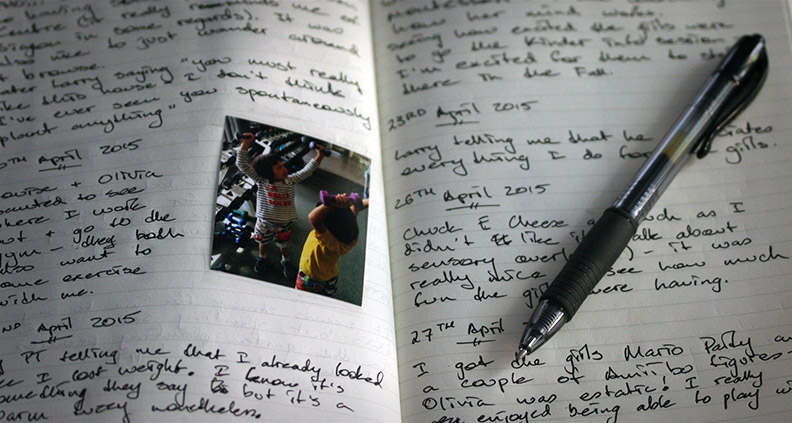 centre (of really
in some regards). It was
also nice to just wander around
+ browse.
Larry saying "you must really
like this house, I don't think
I've ever seen you spontaneously
plant anything"
April 2015
Louise + Olivia
wanted to see
where I work
+ go to the
gym – they both
also want to
some exercise
with me.
April 2015
PT telling me that I already looked
I lost weight. I know it's
something they say but it's a
warm nonetheless.
how her mind works
seeing how excited the girls were
to go the Kinder into session
I'm excited for them to start
there in the Fall.
23RD April 2015
Larry telling me that he
everything I do for girls.
26TH April 2015
Chuck E Cheese as I
didn't like it talk about
sensory – it was
really nice see how much
fun the girls were having.
27TH April
I got the girls Mario Party
a couple of Amiibo figures –
Olivia was estatic! I really
enjoyed being able to play